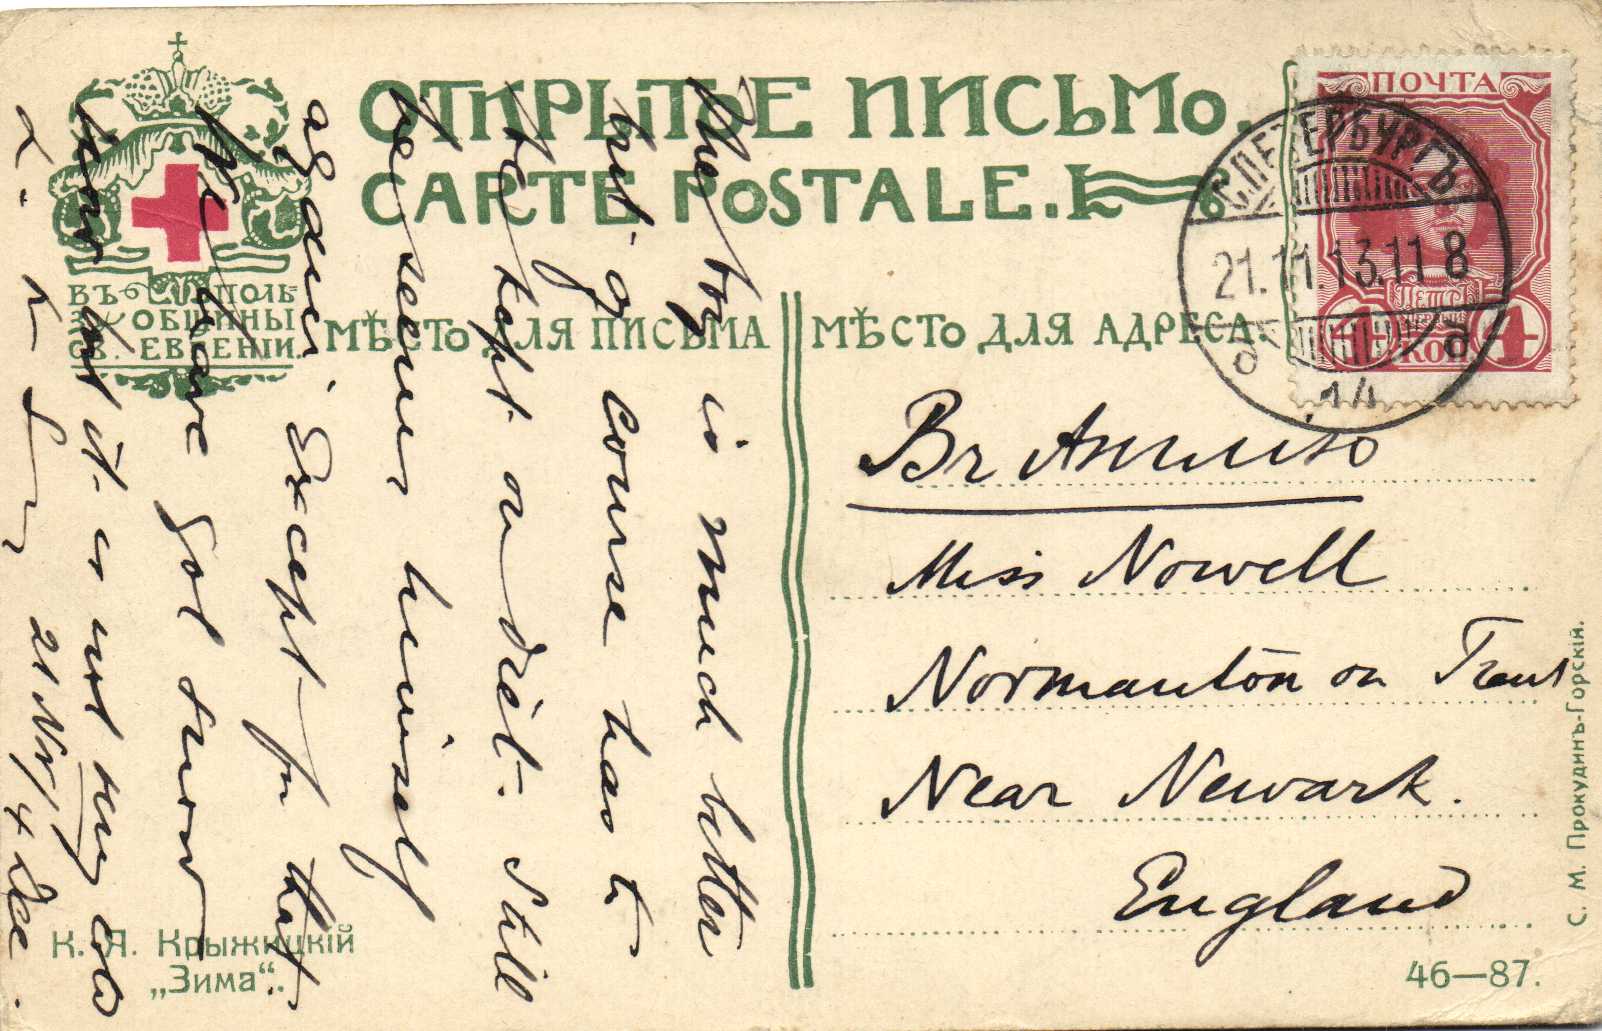 ОТКРЫТОЕ ПИСЬМО.
CARTE POSTALE.
ВЪ ПОЛЬ-
ЗУ ОБЩИНЫ
СВ. ЕВГЕНІИ.
МѢСТО ДЛЯ ПИСЬМА
МѢСТО ДЛЯ АДРЕСА.
ПОЧТА
4 КОП 4
С.ПЕТЕРБУРГЪ
21.11.13.11 8
The boy is much better
but of course has to
be kept on diet. Still
he seems himself
again except for that
We have got snow
here but it is not very cold
21 Nov/4 Dec.
Въ Англію
Miss Nowell
Normanton on Trent
Near Newark.
England
К. Я. Крыжицкій
„Зима“.
46—87.
С. М. Прокудинъ-Горскій.